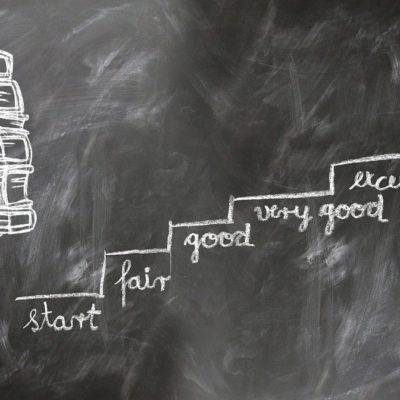 start
fair
good
very good
exce